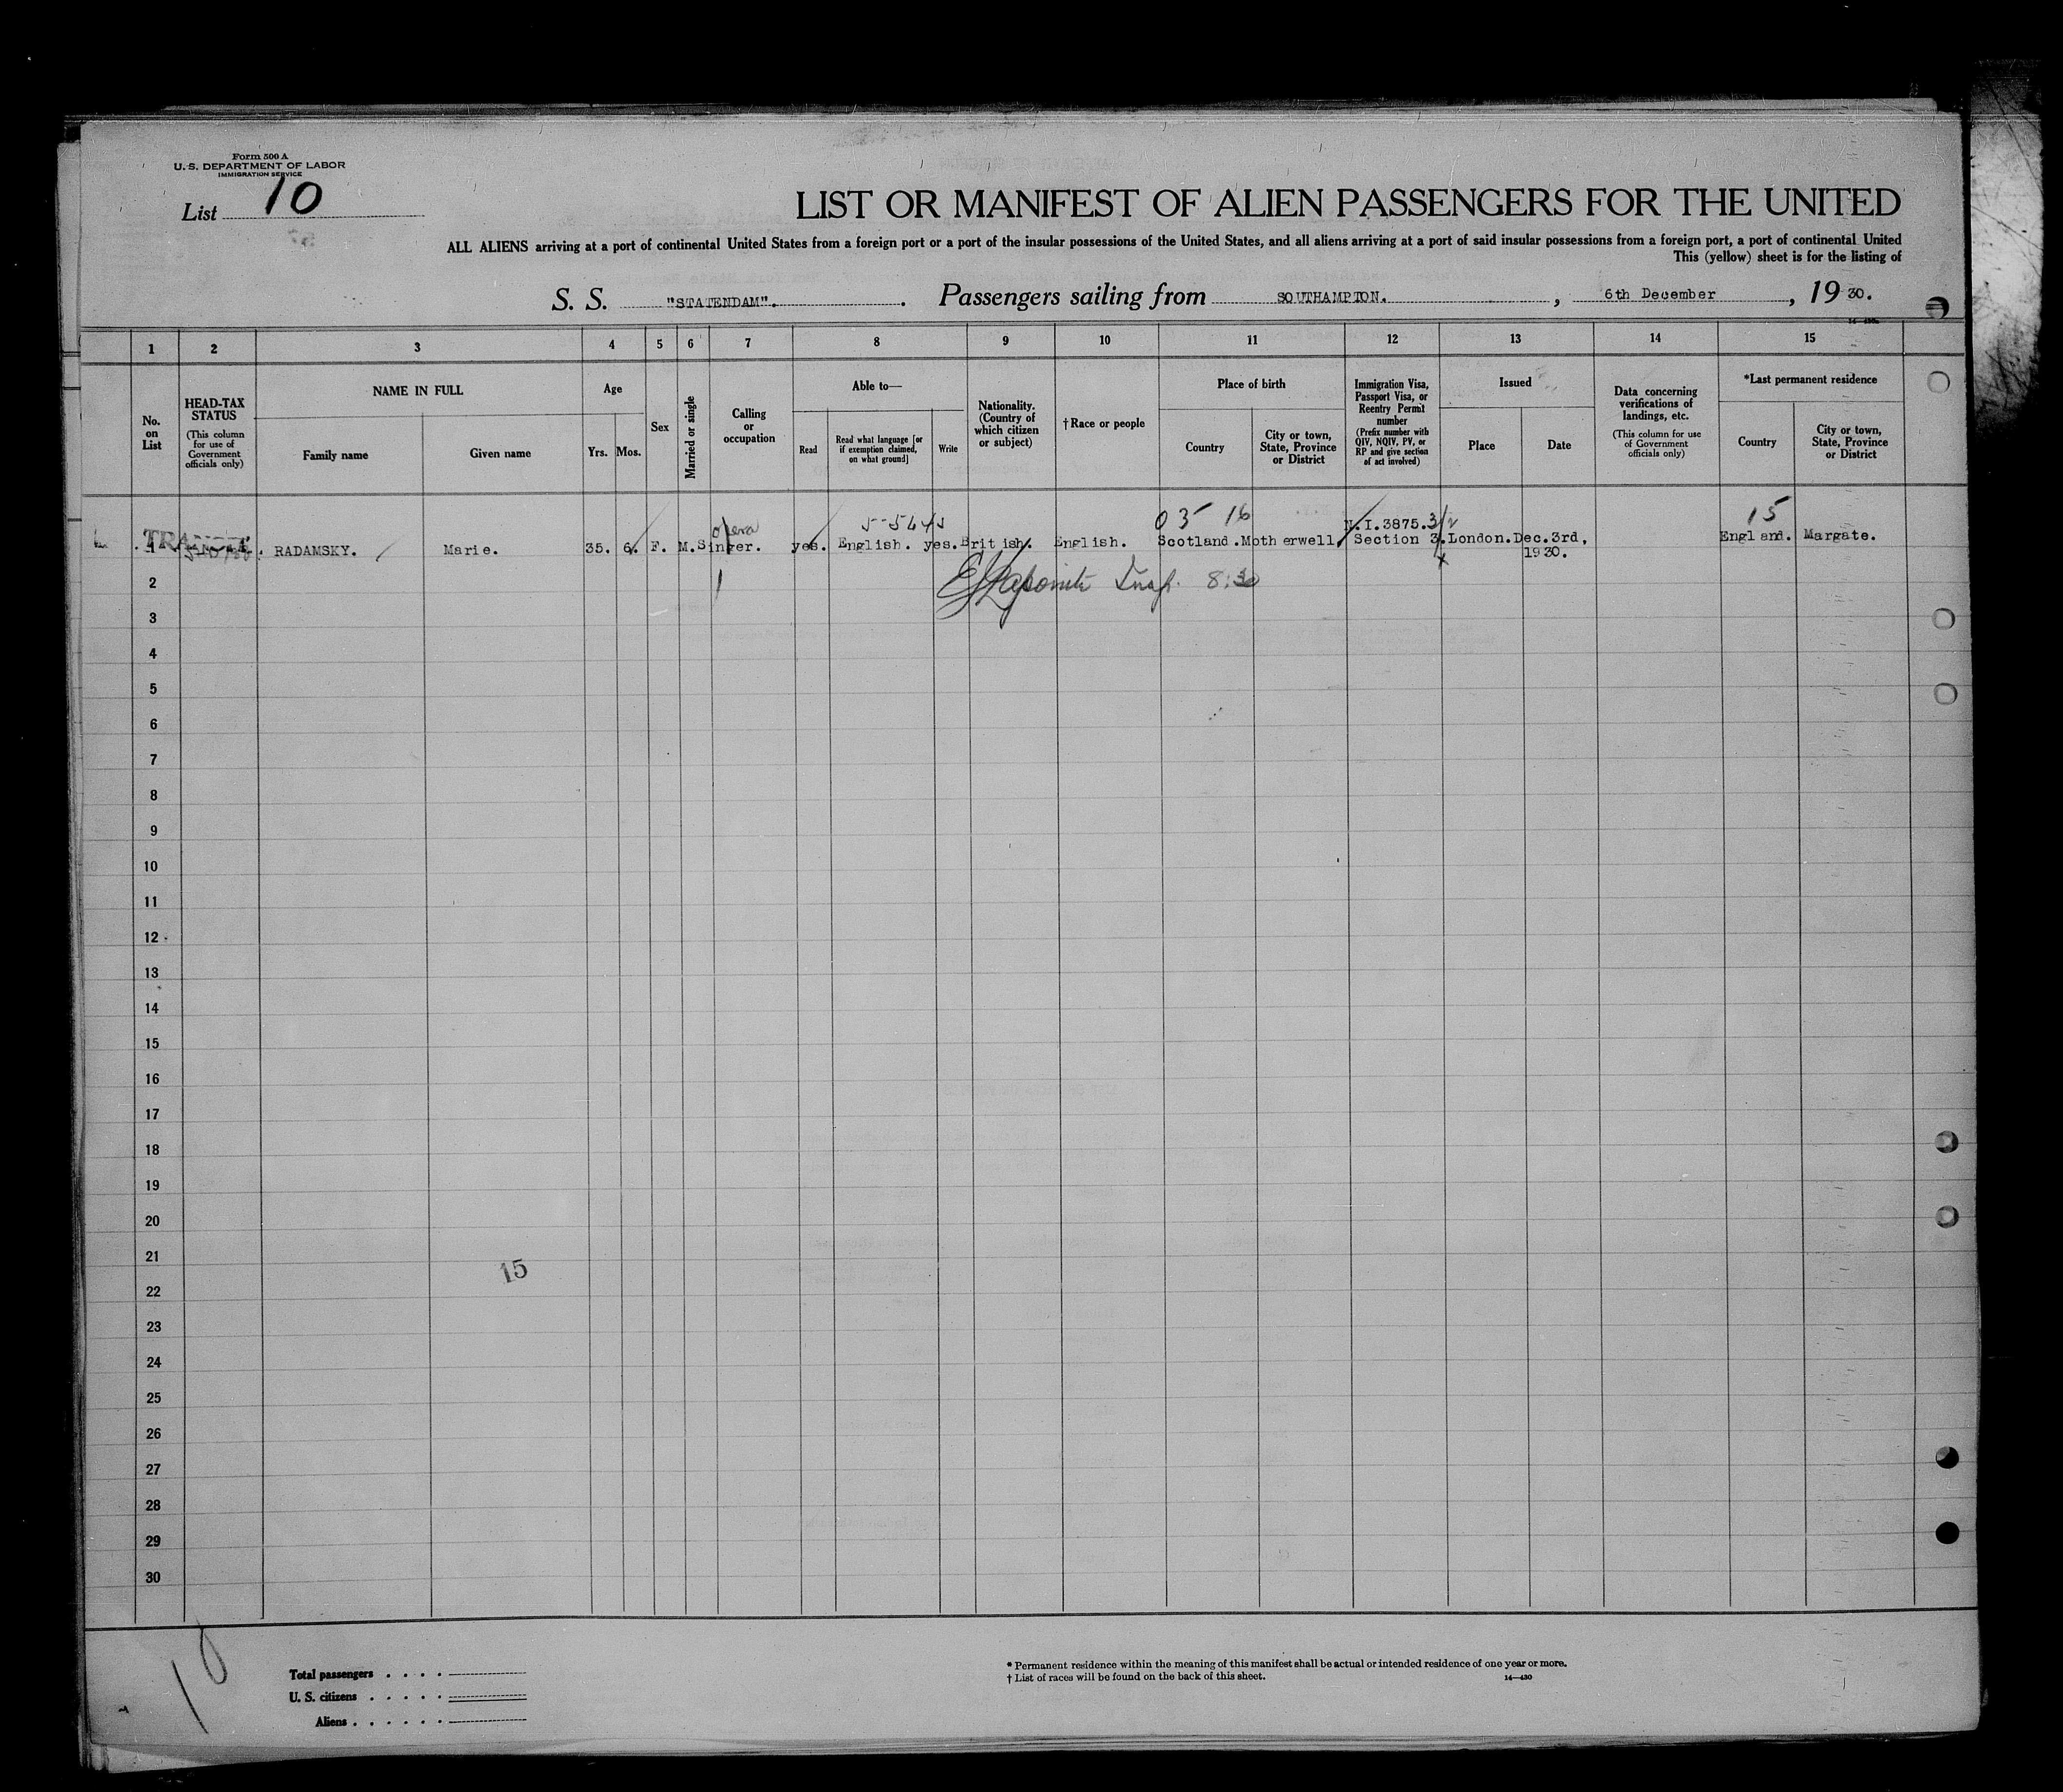 Form 500 A
U. S. DEPARTMENT OF LABOR
IMMIGRATION SERVICE
List 10
LIST OR MANIFEST OF ALIEN PASSENGERS FOR THE UNITED
ALL ALIENS arriving at a port of continental United States from a foreign port or a port of the insular possessions of the United States, and all aliens arriving at a port of said insular possessions from a foreign port, a port of continental United
This (yellow) sheet is for the listing of
S. S. "STATENDAM". Passengers sailing from SOUTHAMPTON. , 6th December , 19 30.
1 2 3 4 5 6 7 8 9 10 11 12 13 14 15
No. on List
HEAD-TAX STATUS
(This column for use of Government officials only)
NAME IN FULL
Family name Given name
Age
Yrs. Mos.
Sex
Married or single
Calling or occupation
Able to—
Read
Read what language [or if exemption claimed, on what ground]
Write
Nationality. (Country of which citizen or subject)
†Race or people
Place of birth
Country
City or town, State, Province or District
Immigration Visa, Passport Visa, or Reentry Permit number
(Prefix number with QIV, NQIV, PV, or RP and give section of act involved)
Issued
Place Date
Data concerning verifications of landings, etc.
(This column for use of Government officials only)
*Last permanent residence
Country
City or town, State, Province or District
opera 03 16 N.I.3875. 3/2 15
1 RADAMSKY. Marie. 35. 6. F. M. Singer. yes. English. yes. British. English. Scotland. Motherwell. Section 3. London. Dec.3rd, England. Margate.
1930.
2 8:30
3
4
5
6
7
8
9
10
11
12
13
14
15
16
17
18
19
20
21
15
22
23
24
25
26
27
28
29
30
10
Total passengers . . . .
U. S. citizens . . . . .
Aliens . . . . . .
* Permanent residence within the meaning of this manifest shall be actual or intended residence of one year or more.
† List of races will be found on the back of this sheet. 14—430